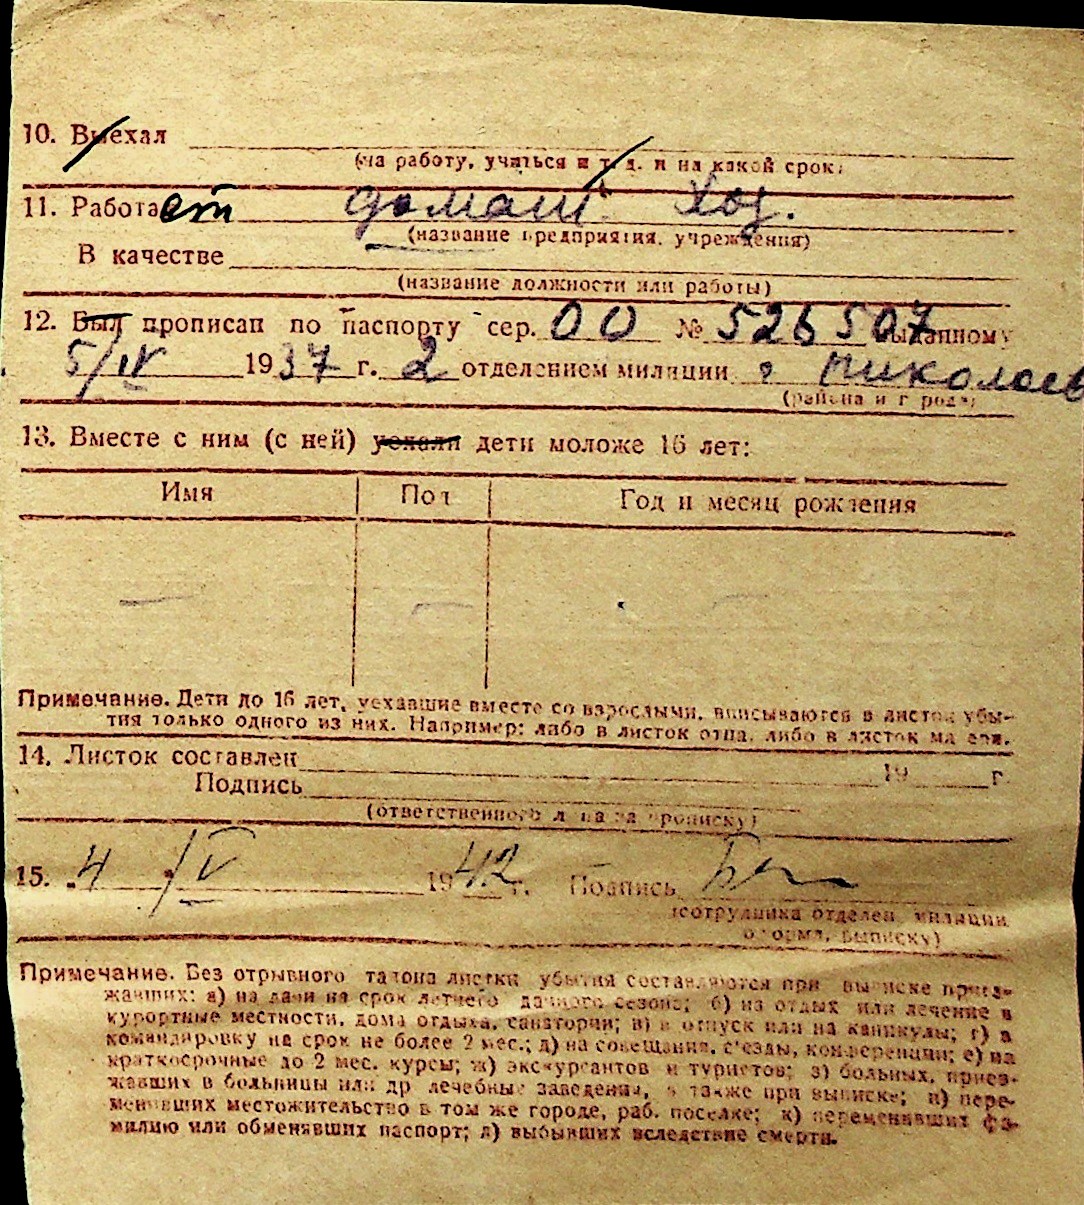 10. Выехал
(на работу, учиться и т. д. и на какой срок)
11. Работает домаш. хоз.
(название предприятия, учреждения)
В качестве
(название должности или работы)
12. Был прописан по паспорту сер. 00 № 526507 выданному
5/IV 1937 г. 2 отделением милиции г Николаев
(района и города)
13. Вместе с ним (с ней) уехали дети моложе 16 лет:
Имя Пол Год и месяц рождения
— — —
Примечание. Дети до 16 лет, уехавшие вместе со взрослыми, вписываются в листок убы-
тия только одного из них. Например: либо в листок отца, либо в листок матери.
14. Листок составлен 19 г.
Подпись
(ответственного лица за прописку)
15. 4 /V 1942 г. Подпись
(сотрудника отделен. милиции
оформ. выписку)
Примечание. Без отрывного талона листки убытия составляются при выписке приез-
жавших: а) на дачи на срок летнего дачного сезона; б) на отдых или лечение в
курортные местности, дома отдыха, санатории; в) в отпуск или на каникулы; г) в
командировку на срок не более 2 мес.; д) на совещания, с'езды, конференции; е) на
краткосрочные до 2 мес. курсы; ж) экскурсантов и туристов; з) больных, приез-
жавших в больницы или др лечебные заведения, а также при выписке; и) пере-
менивших местожительство в том же городе, раб. поселке; к) переменивших фа-
милию или обменявших паспорт; л) выбывших вследствие смерти.